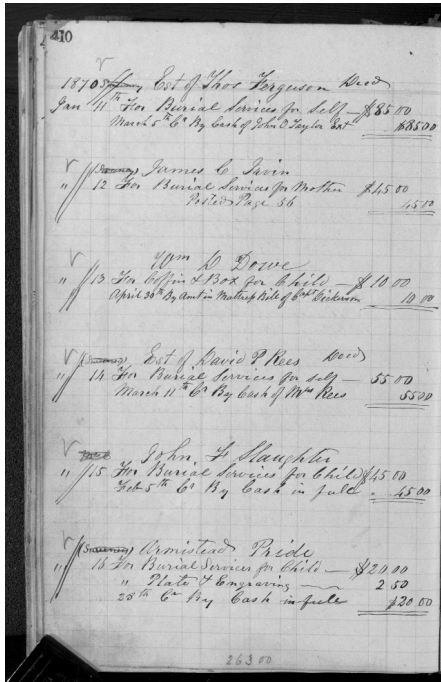 410
1870 Est of Thos Ferguson Decd
Jan 11th For Burial Services for self — $85.00
March 5th Cr By Cash of John C Taylor Ext $85.00
James C Irvin
" 12 For Burial Services for Mother $45.00
Posted Page 56 45.00
Wm D Dowe
" 13 For Coffin & Box for Child — $10.00
April 30th By Amt in Mattress Bill of Capt Dickerson 10.00
Est of David P Rees Decd
" 14 For Burial Services for self — 55.00
March 11th Cr By Cash of Mrs Rees 55.00
John F Slaughter
" 15 For Burial Services for Child $45.00
Feb 5th Cr By Cash in full " 45.00
Armistead Pride
" 15 For Burial Services for Child — $20.00
" Plate & Engraving — 2.50
25th Cr By Cash in full $20.00
263.00